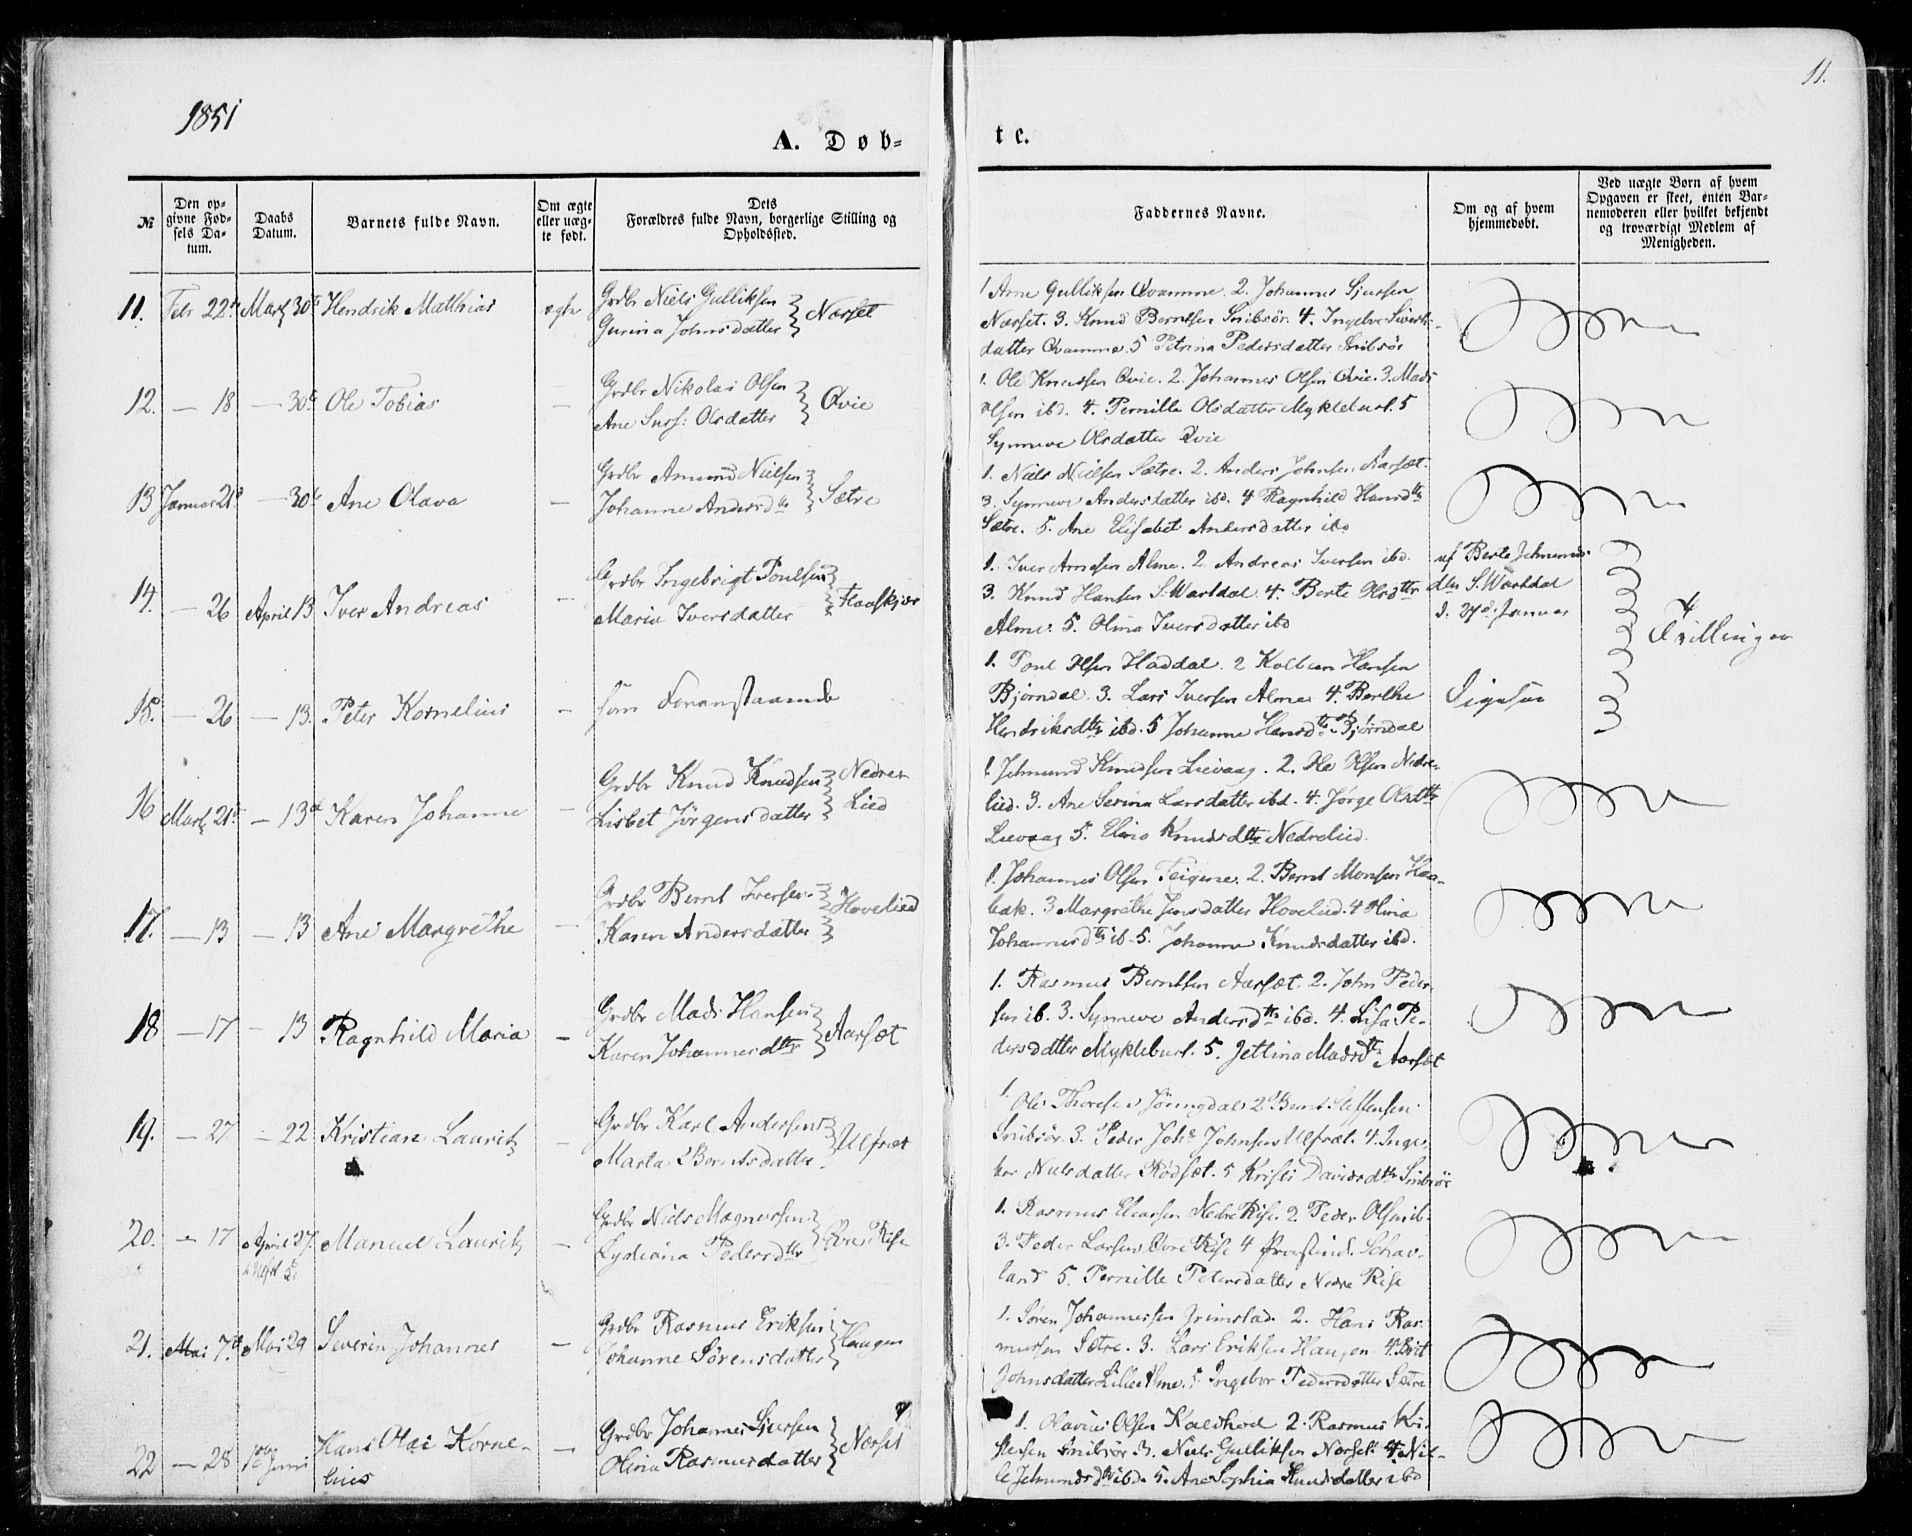 1851
11.
A. Døb-
te.
№
Den op-
givne Fød-
sels Da-
tum.
Daabs
Datum.
Barnets fulde Navn.
Om ægte
eller uæg-
te født.
Dets
Forældres fulde Navn, borgerlige Stilling og
Opholdssted.
Faddernes Navne.
Om og af hvem
hjemmedøbt.
Ved uægte Børn af hvem
Opgaven er skeet, enten Bar-
nemoderen eller hvilket bekjendt
og troværdigt Medlem af
Menigheden.
11. Febr 22 Marts 30 Hendrik Matthias ægte
Grdbr Niels Gulliksen
Gurina Johnsdatter
Nærset
1 Arne Gulliksen Qvamme. 2. Johannes Sjursen
Nærset. 3. Knud Berntsen Snibsör. 4. Ingebor Siverts-
datter Qvamme. 5 Petrina Pedersdatter Snibsör
12. — 18 — 30 Ole Tobias —
Grdbr Nikolai Olsen
Ane Olsdatter
Qvie
1. Ole Knudsen Qvie. 2. Johannes Olsen Qvie. 3. Mads
Olsen ibd. 4. Pernille Olsdatter Myklebust. 5
Synneve Olsdatter Qvie
13 Januar 21 — 30 Ane Olava —
Grdbr Amund Nielsen
Johanne Andersdtr
Sætre
1. Niels Nielsen Sætre. 2. Anders Johnsen Aarsæt.
3. Synneve Andersdatter ibd. 4 Ragnhild Hansdtr
Sætre. 5. Ane Elisabet Andersdatter ibd
14. — 26 April 13 Iver Andreas —
Grdbr Ingebrigt Poulsen
Maria Iversdatter
Flaaskjær
1. Iver Arnesen Alme. 2. Andreas Iversen ibd.
3. Knud Hansen S. Vartdal. 4. Berte Olsdtr
Alme. 5. Olina Iversdatter ibd
af Berte Jetmunds-
dtr S. Vartdal
d. 27d. Januar
Tvillinger
15. — 26 — 13. Peter Kornelius —
som Foranstaaende
1. Poul Olsen Haddal. 2 Kolbeen Hansen
Bjørndal. 3. Lars Iversen Alme 4. Berthe
Hendriksdtr ibd. 5 Johanne Hansdtr Bjørndal
Ligesaa
16 Marts 21 — 13 Karen Johanne —
Grdbr Knud Knudsen
Lisbet Jörgensdatter
Nedre
Lied
1. Jetmund Knudsen Lievaag. 2. Ole Olsen Nedre-
lied. 3. Ane Serina Larsdatter ibd. 4. Jørge Olsdtr
Lievaag 5. Knudsdtr Nedrelied.
17. — 13 — 13 Ane Margrethe —
Grdbr Bernt Iversen
Karen Andersdatter
Hovelied
1. Johannes Olsen Teigene. 2. Bernt Monsen Haa-
bak. 3 Margrethe Jensdatter Hovelied. 4 Olina
Johannesdtr ib. 5. Johanne Knudsdatter ibd.
18 — 17 — 13 Ragnhild Maria —
Grdbr Mads Hansen
Karen Johannesdtr
Aarsæt
1. Rasmus Berntsen Aarsæt. 2. John Peder-
sen ib. 3. Synneve Andersdtr ibd. 4. Lisa Pe-
dersdatter Myklebust. 5. Jettina Madsdtr Aarsæt
19. — 27 — 22 Kristian Laurits —
Grdbr Karl Andersen
Marta Berntsdatter
Ulfsæt
1. Ole Thoresen 2 Bernt Steffensen
Snibsör. 3. Peder Johs Johnsen Ulfsæt. 4. Inge-
bor Nielsdatter Rødsæt. 5 Kristi Davidsdtr Snibsör
20. — 17 April 27. Manuel Laurits —
Grdbr Niels Magnussen
Lydiana Pedersdtr
Øvre Rise
1. Rasmus Eliassen Nedre Rise. 2. Peder Olsen ib.
3. Peder Larsen Øvre Rise 4
land 5. Pernille Petersdatter Nedre Rise
21. Mai 7. Mai 29 Severin Johannes —
Grdbr Rasmus Eriksen
Johanne Sörensdatter
Haugen
1. Søren Johannessen Grimstad. 2. Hans Ras-
mussen Sætre. 3. Lars Eriksen Haugen. 4. Brit
Johnsdatter Lille Alme. 5 Ingebor Pedersdatter Sætre
22 — 28 Juni Hans Olai Korne-
lius —
Grdbr Johannes Sjursen
Olina Rasmusdatter
Nærset
1. Olavus Olsen Kaldhol 2. Rasmus Kri-
stensen Snibsör 3. Niels Gulliksen Nærset. 4. Nil-
le Jetmundsdtr ibd. 5. Ane Sophia Knudsdatter ibd